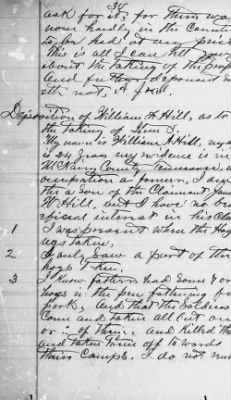 34
ask for it, for there was
none hardly in the Country
to be had at any price
this is all I can tell you
about the taking of the prop
And further deponent s
eth not. A J Hill.
Deposition of William H. Hill, as to
the taking of Item 3.
My name is William H Hill, my age
is 24 years my residence is in
McNairy County Tennessee, a
occupation a farmer, I am
the a Son of the Claimant James
W Hill, but I have no ben
eficial interest in his Claim
1 I was present when the Hogs
was taken,
2 I only saw a part of the
hogs taken.
3 I know father had some 8 or
hogs in the pen fattening for
pork, and that the Soldiers
Come and taken all but one
or of them, and Killed th
and taken them off towards
their Camps. I do not rem